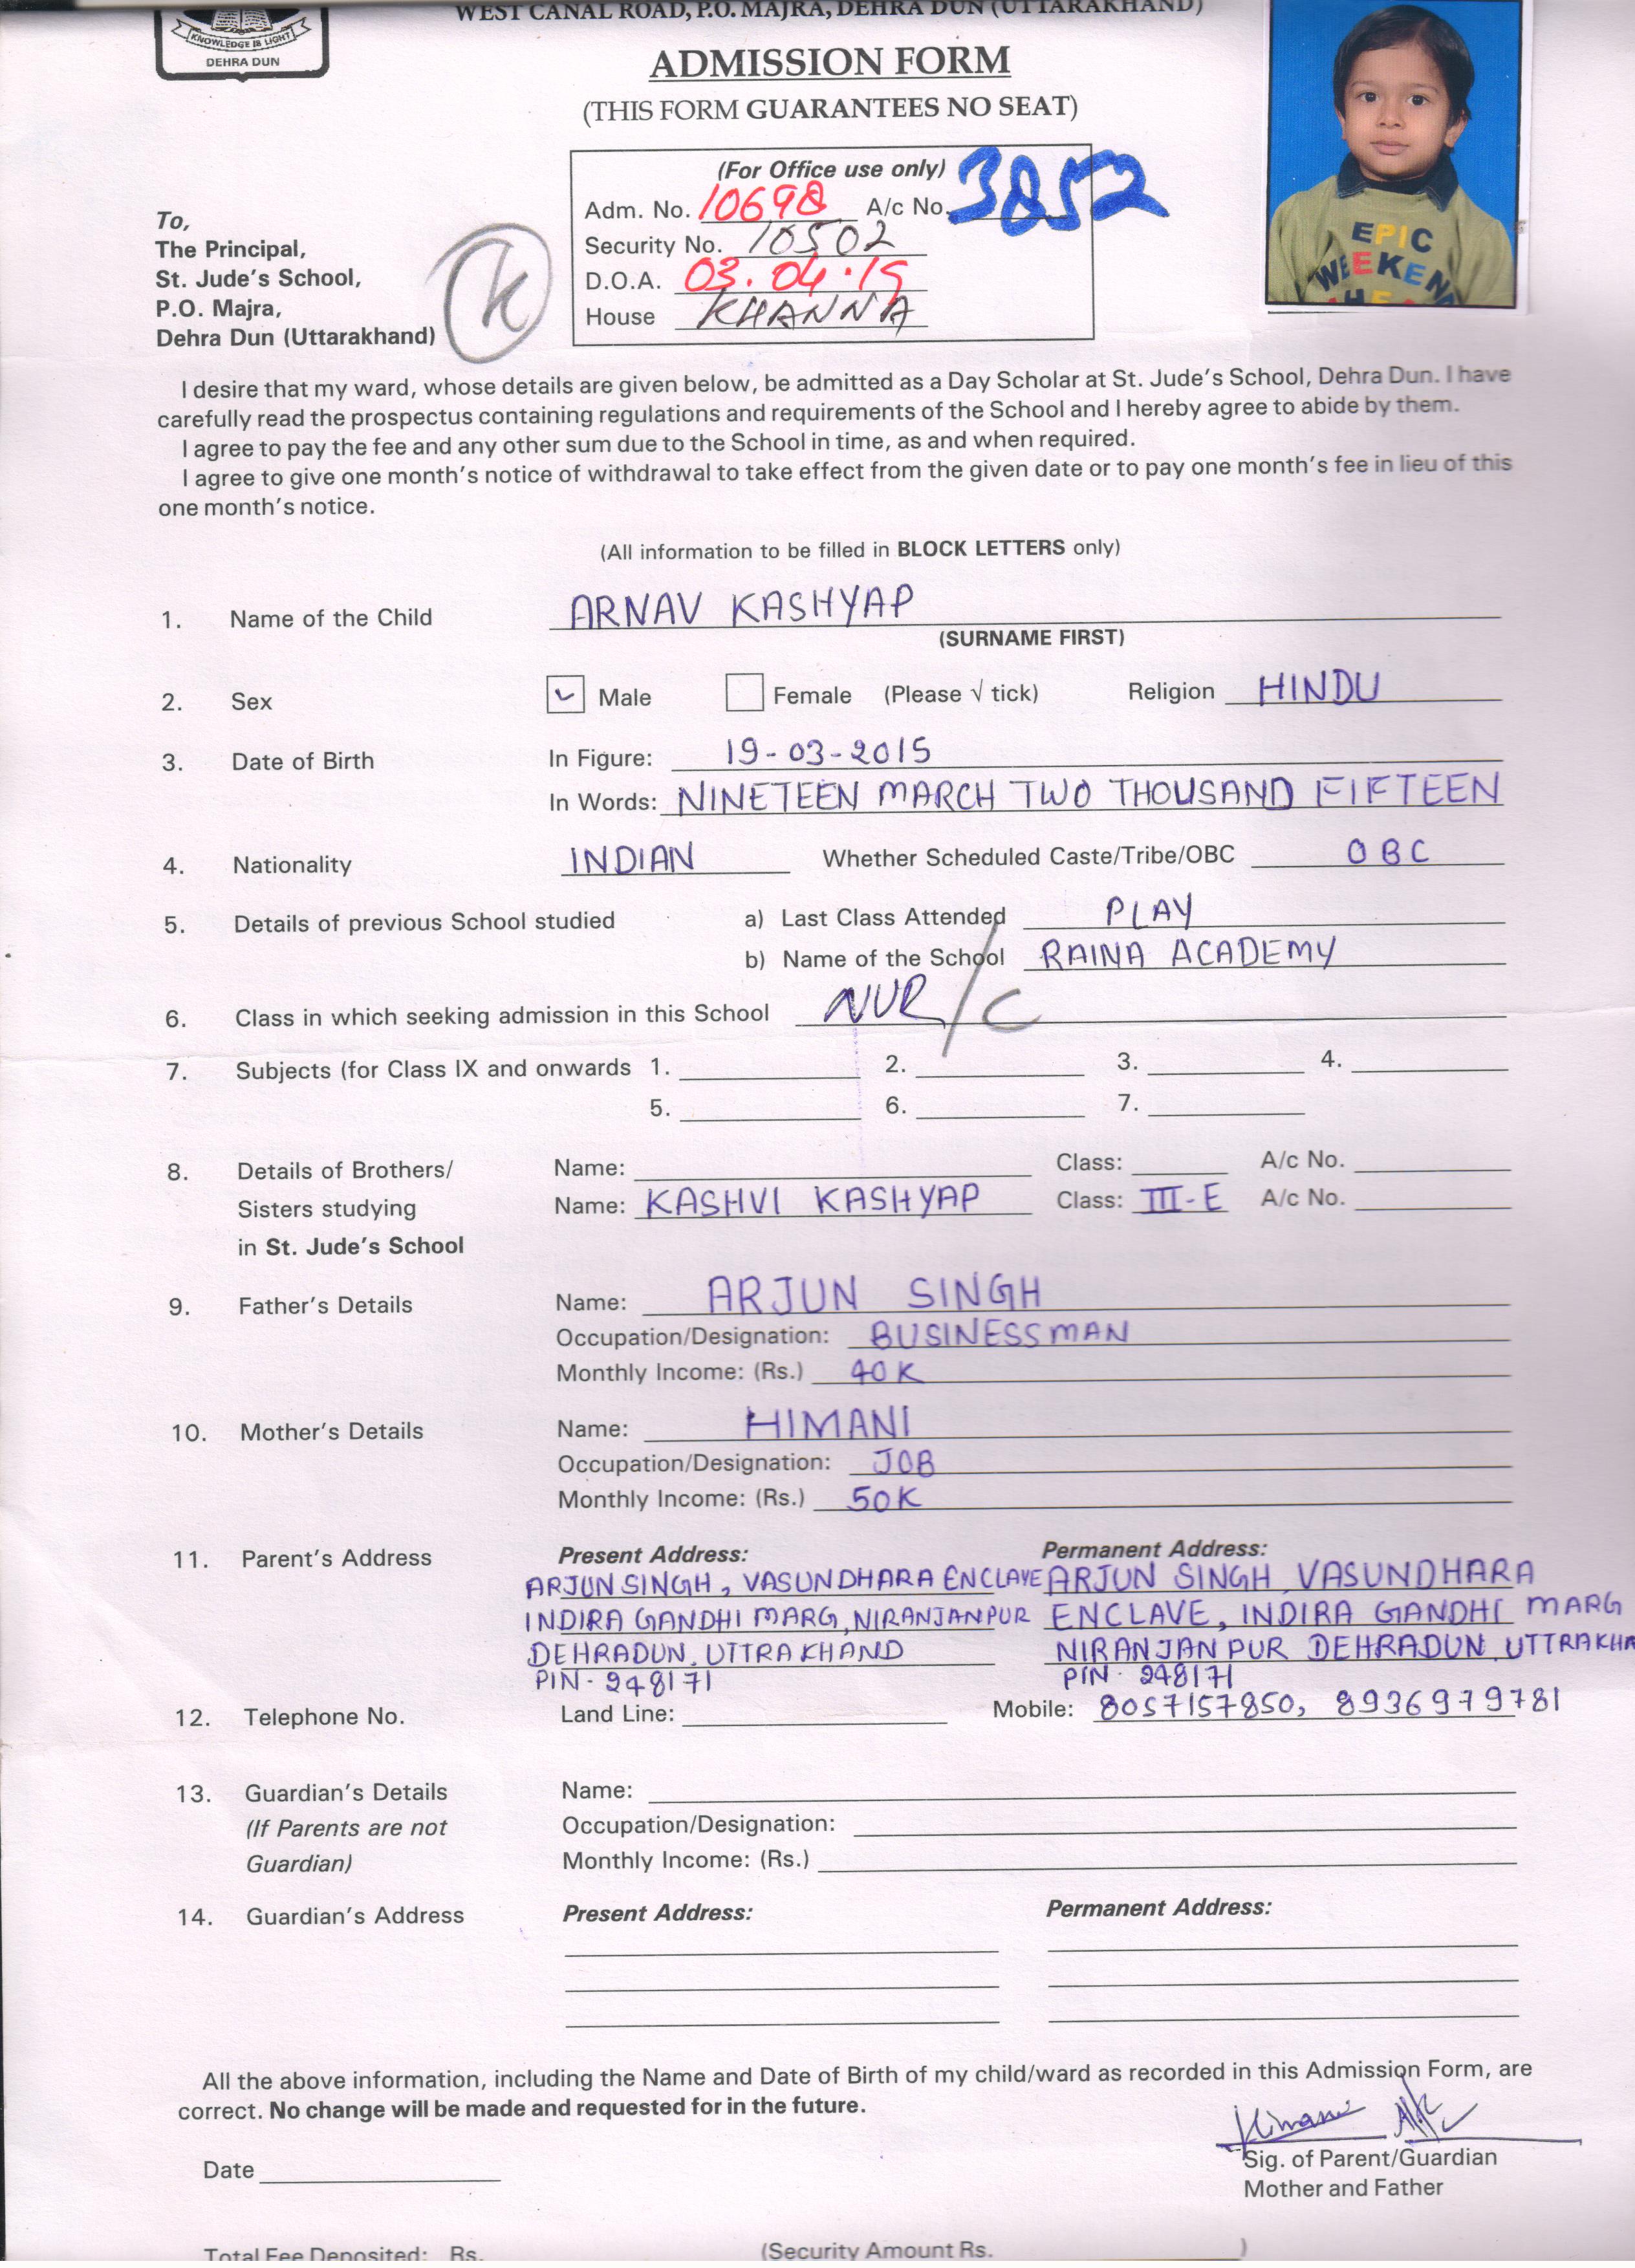 WEST CANAL ROAD, P.O. MAJRA, DEHRA DUN (UTTARAKHAND)
KNOWLEDGE IS LIGHT
DEHRA DUN
ADMISSION FORM
(THIS FORM GUARANTEES NO SEAT)
(For Office use only)
Adm. No. 10698 A/c No. 3852
Security No. 10502
D.O.A. 03.04.19
House KHANNA
To,
The Principal,
St. Jude's School,
P.O. Majra,
Dehra Dun (Uttarakhand)
K
EPIC
WEEKEN
I desire that my ward, whose details are given below, be admitted as a Day Scholar at St. Jude's School, Dehra Dun. I have
carefully read the prospectus containing regulations and requirements of the School and I hereby agree to abide by them.
I agree to pay the fee and any other sum due to the School in time, as and when required.
I agree to give one month's notice of withdrawal to take effect from the given date or to pay one month's fee in lieu of this
one month's notice.
(All information to be filled in BLOCK LETTERS only)
1. Name of the Child ARNAV KASHYAP
(SURNAME FIRST)
2. Sex ✓ Male Female (Please √ tick) Religion HINDU
3. Date of Birth In Figure: 19-03-2015
In Words: NINETEEN MARCH TWO THOUSAND FIFTEEN
4. Nationality INDIAN Whether Scheduled Caste/Tribe/OBC OBC
5. Details of previous School studied a) Last Class Attended PLAY
b) Name of the School RAINA ACADEMY
6. Class in which seeking admission in this School NUR/C
7. Subjects (for Class IX and onwards 1. 2. 3. 4.
5. 6. 7.
8. Details of Brothers/ Name: Class: A/c No.
Sisters studying Name: KASHVI KASHYAP Class: III-E A/c No.
in St. Jude's School
9. Father's Details Name: ARJUN SINGH
Occupation/Designation: BUSINESSMAN
Monthly Income: (Rs.) 40K
10. Mother's Details Name: HIMANI
Occupation/Designation: JOB
Monthly Income: (Rs.) 50K
11. Parent's Address Present Address: Permanent Address:
ARJUN SINGH, VASUNDHARA ENCLAVE ARJUN SINGH VASUNDHARA
INDIRA GANDHI MARG, NIRANJANPUR ENCLAVE, INDIRA GANDHI MARG
DEHRADUN, UTTRAKHAND NIRANJANPUR DEHRADUN, UTTRAKHA
PIN- 248171 PIN- 248171
12. Telephone No. Land Line: Mobile: 8057157850, 8936979781
13. Guardian's Details Name:
(If Parents are not Occupation/Designation:
Guardian) Monthly Income: (Rs.)
14. Guardian's Address Present Address: Permanent Address:
All the above information, including the Name and Date of Birth of my child/ward as recorded in this Admission Form, are
correct. No change will be made and requested for in the future.
Himani
Date Sig. of Parent/Guardian
Mother and Father
Total Fee Deposited: Rs. (Security Amount Rs. )